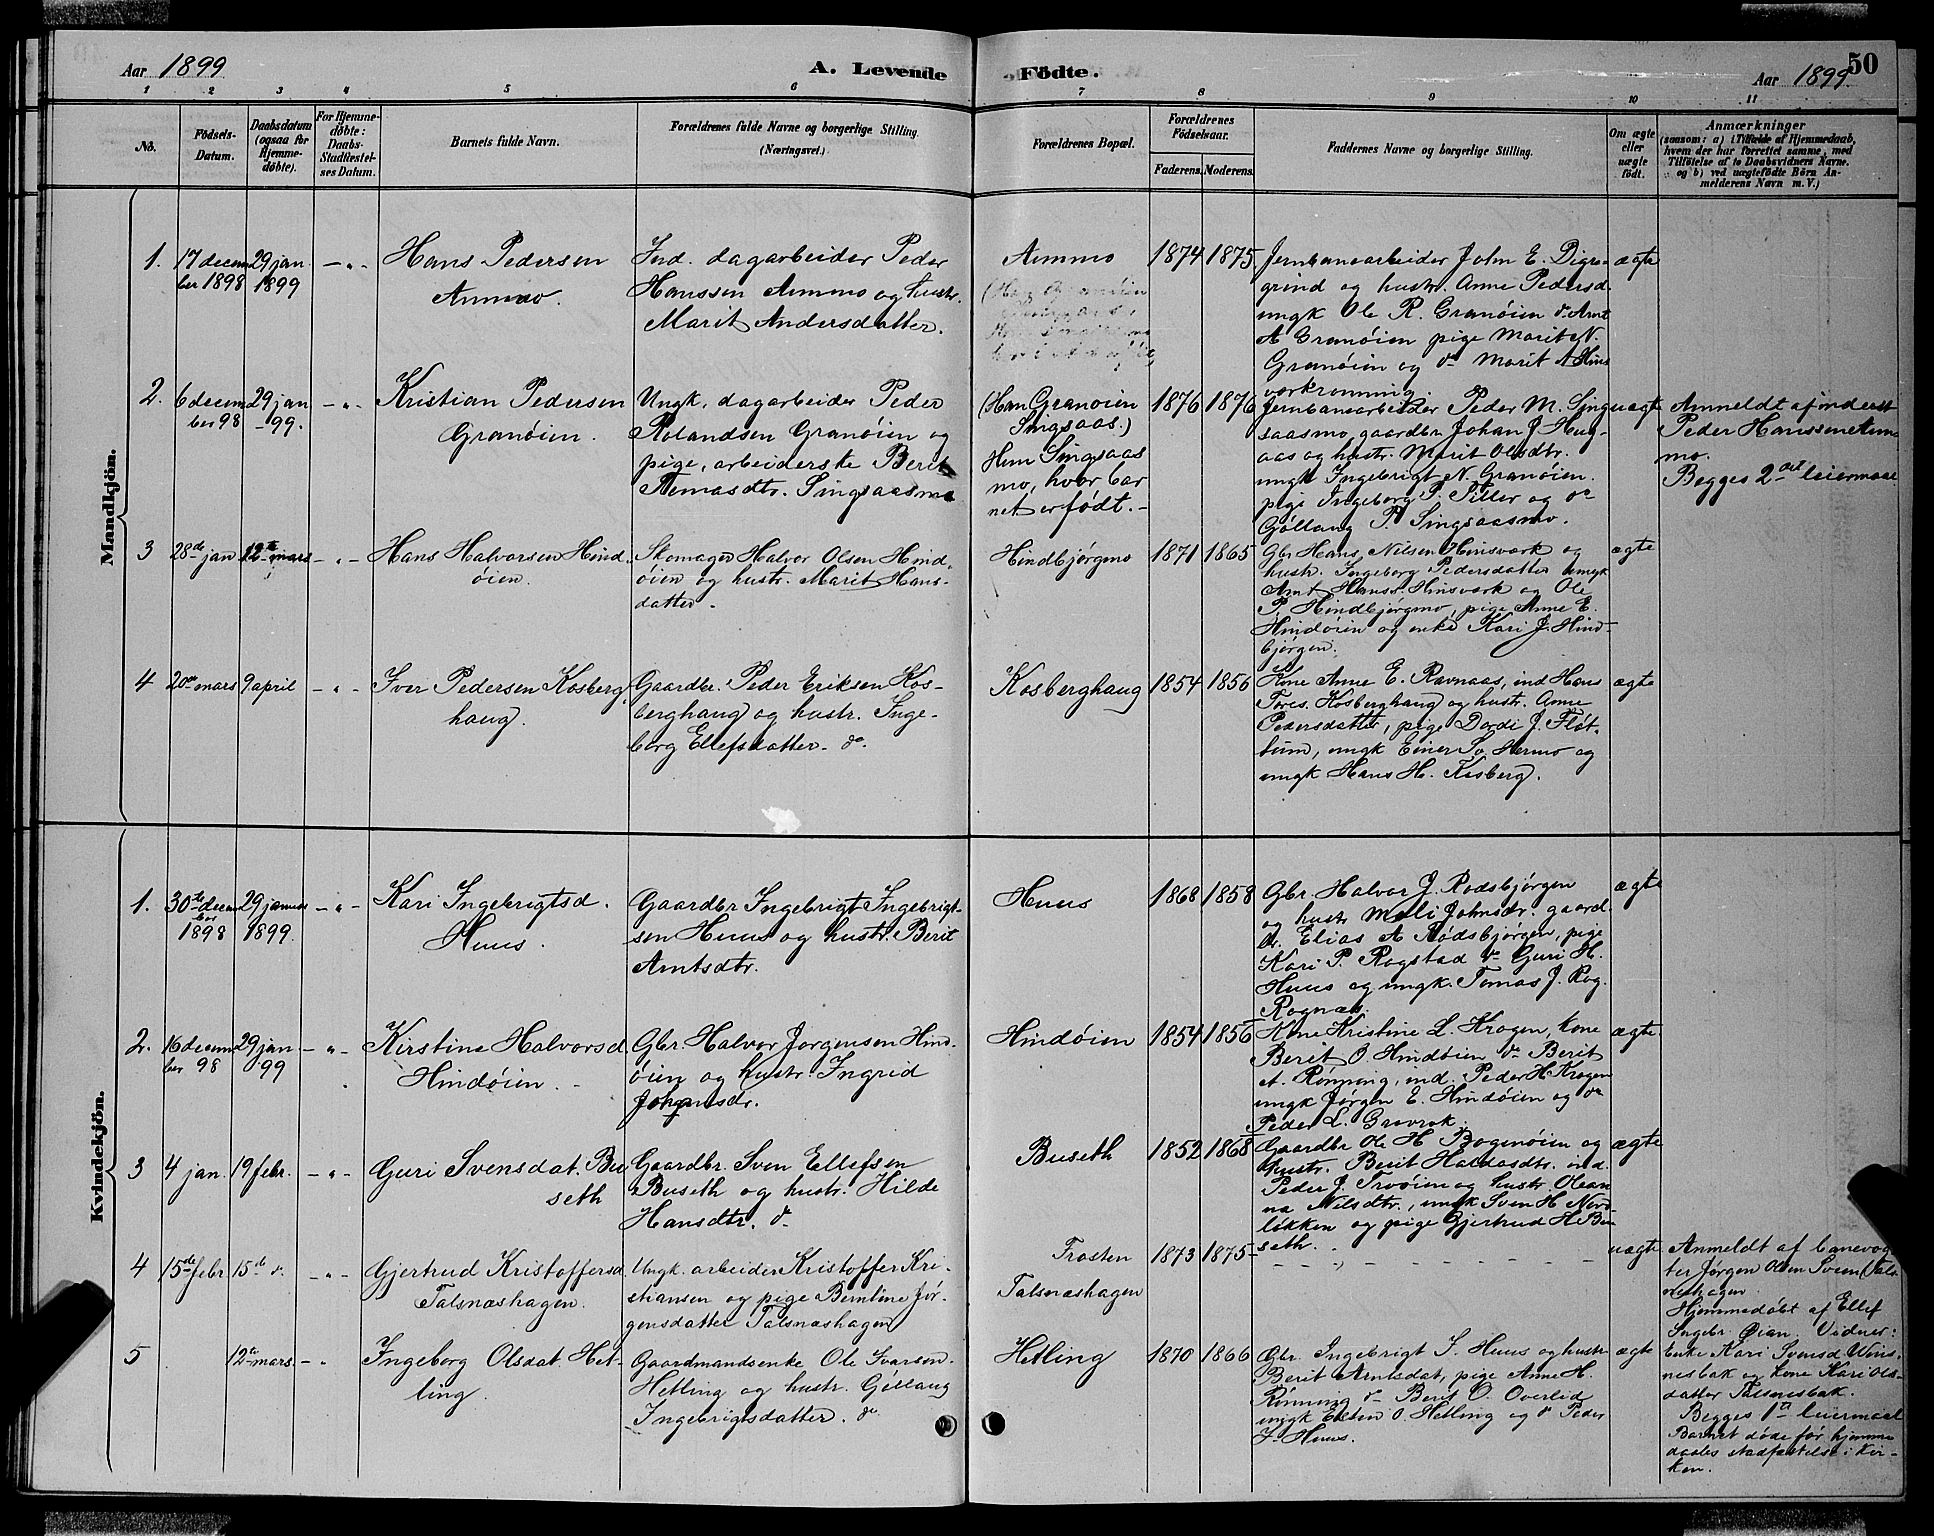 Aar 1899
A. Levende
Födte.
Aar 1899.
50
1 2 3 4 5 6 7 8 9 10 11
No.
Födsels-
Datum.
Daabsdatum
(ogsaa for
Hjemme-
döbte).
For Hjemme-
döbte:
Daabs-
Stadfæstel-
ses Datum.
Barnets fulde Navn.
Forældrenes fulde Navne og borgerlige Stilling.
(Næringsvei.)
Forældrenes Bopæl.
Forældrenes
Födselsaar.
Faderens. Moderens.
Faddernes Navne og borgerlige Stilling.
Om ægte
eller
uægte
födt.
Anmærkninger
(saasom: a) i Tilfælde af Hjemmedaab,
hvem der har forrettet samme, med
Tilföielse af to Daabsvidners Navne.
og b) ved uægtefödte Börn An-
melderens Navn m. V.)
Mandkjön.
1.
17 decem
ber 1898
29 jan.
1899
Hans Pedersen
Aunmo.
Ind. dagarbeider Peder
Hanssen Aunmo og hustr.
Marit Andersdatter.
Aunmo
1874 1875
Jernbanearbeider John E. Digre-
grind og hustr. Anne Pedersd.
ungk Ole R. Granöien do Arnt
A Granöien pige Marit N.
Granöien og do Marit A Hins
værkrønning.
ægte
2.
6 decem
ber 98
29 jan
-99.
Kristian Pedersen
Granöien.
Ungk. dagarbeider Peder
Rolandsen Granöien og
pige, arbeiderske Berit
Tomasdtr. Singsaasmo
(Han Granöien
Singsaas.)
Hun Singsaas
mo, hvor bar
net er födt.-
1876 1876
Jernbanearbeider Peder M. Sing
saasmo gaardbr Johan J Haug-
aas og hustr. Marit Olsdtr.
ungk Ingebrigt N. Granöien.
pige Ingeborg P. Tiller og do
Göllaug P. Singsaasmo.
uægte
Anmeldt af inderst
Peder Hanssen Aun
mo.
Begges 2det leiermaal
3
28de jan
12te mars
Hans Halvorsen Hind.
öien.
Skomager Halvor Olsen Hind.
öien og hustr. Marit Hans-
datter.
Hindbjörgmo
1871 1865
Gbr Hans Nilsen Hinsværk og
hustr. Ingeborg Pedersdatter ungk
Arnt Hanss. Hinsværk og Ole
P. Hindbjörgmo, pige Anne E.
Hindöien og enke Kari J. Hind-
björgen.
ægte
4
20de mars
9 april
Iver Pedersen Kosberg
haug.
Gaardbr. Peder Eriksen Kos-
berghaug og hustr. Inge-
borg Ellefsdatter. do.
Kosberghaug
1854 1856
Kone Anne E. Ravnaas, ind Hans
Tores. Kosberghaug og hustr. Anne
Pedersdatter, pige Dordi J. Flöt-
tum, ungk Einer So. Hermo og
ungk Hans H. Kosberg.
ægte
Kvindekjön.
1.
30te decem
ber
1898
29 januar
1899
Kari Ingebrigtsd.
Huus.
Gaardbr Ingebrigt Ingebrigt-
sen Huus og hustr. Berit
Arntsdtr.
Huus
1868 1858
Gbr. Halvor J. Rödsbjörgen
og hustr Mali Johnsdr. gaard
br. Elias A Rödsbjörgen, pige
Kari P. Rogstad do Guri H.
Huus og ungk. Tomas J. Rog.
Rognæs.
ægte
2.
16 decem
ber 98
29 jan
99
Kirstine Halvorsd.
Hindöien.
Gbr. Halvor Jorgensen Hind-
öien og hustr. Ingrid
Johansdr.
Hindöien
1854 1856
Kone Kristine L. Krogen, kone
Berit O. Hindöien do Berit
A. Rönning, ind. Peder H Krogen
ungk Jörgen E. Hindöien og do
Peder L. Gravrok.
ægte
3
4 jan.
19 febr.
Guri Svensdat. Bu
seth
Gaardbr. Sven Ellefsen
Buseth og hustr. Hilde
Hansdtr. do
Buseth
1852 1868
Gaardbr Ole H Bogenöien og
hustr. Berit Haldosdtr. ind
Peder J. Troöien og hustr Olean
na Nilsdtr., ungk Sven H Nord
lökken og pige Gjertrud H. Bu
seth.
ægte
4
15de febr
15de do.
Gjertrud Kristoffersd.
Talsnæshagen.
Ungk. arbeider Kristoffer Kri-
stiansen og pige Berntine Jör-
gensdatter Talsnæshagen
Trosten
Talsnæshagen
1873 1875
uægte
Anmeldt af banevog
ter Jörgen Olsen Sveen (Tals
neshagen
Hjemmedöbt af Ellef
Ingebr. Öian. Vidner:
Enke Kari Svensd
nesbak og kone Kari Ols-
datter Talsnesbak.
Begges 1ste leiermaal
Barnet döde för hjemme
daabs stadfæstelse i kir-
ken.
5
12te mars.
Ingeborg Olsdat. Het-
ling.
Gaardmandsenke Ole Ivarsen
Hetling og hustr. Göllaug
Ingebrigtsdatter. do
Hetling
1870 1866
Gbr. Ingebrigt I. Huus og hustr
Berit Arntsdat, pige Anne H.
Rönning do Berit O. Overlid
ungk Esten O. Hetling og do Peder
I. Huus.
ægte